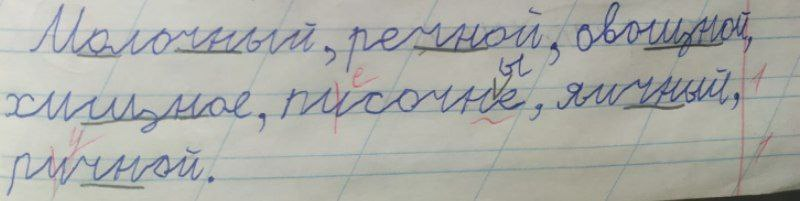 Молочный, речной, овощной,
е ы
хищное, писочне, яичный,
у
ричной.